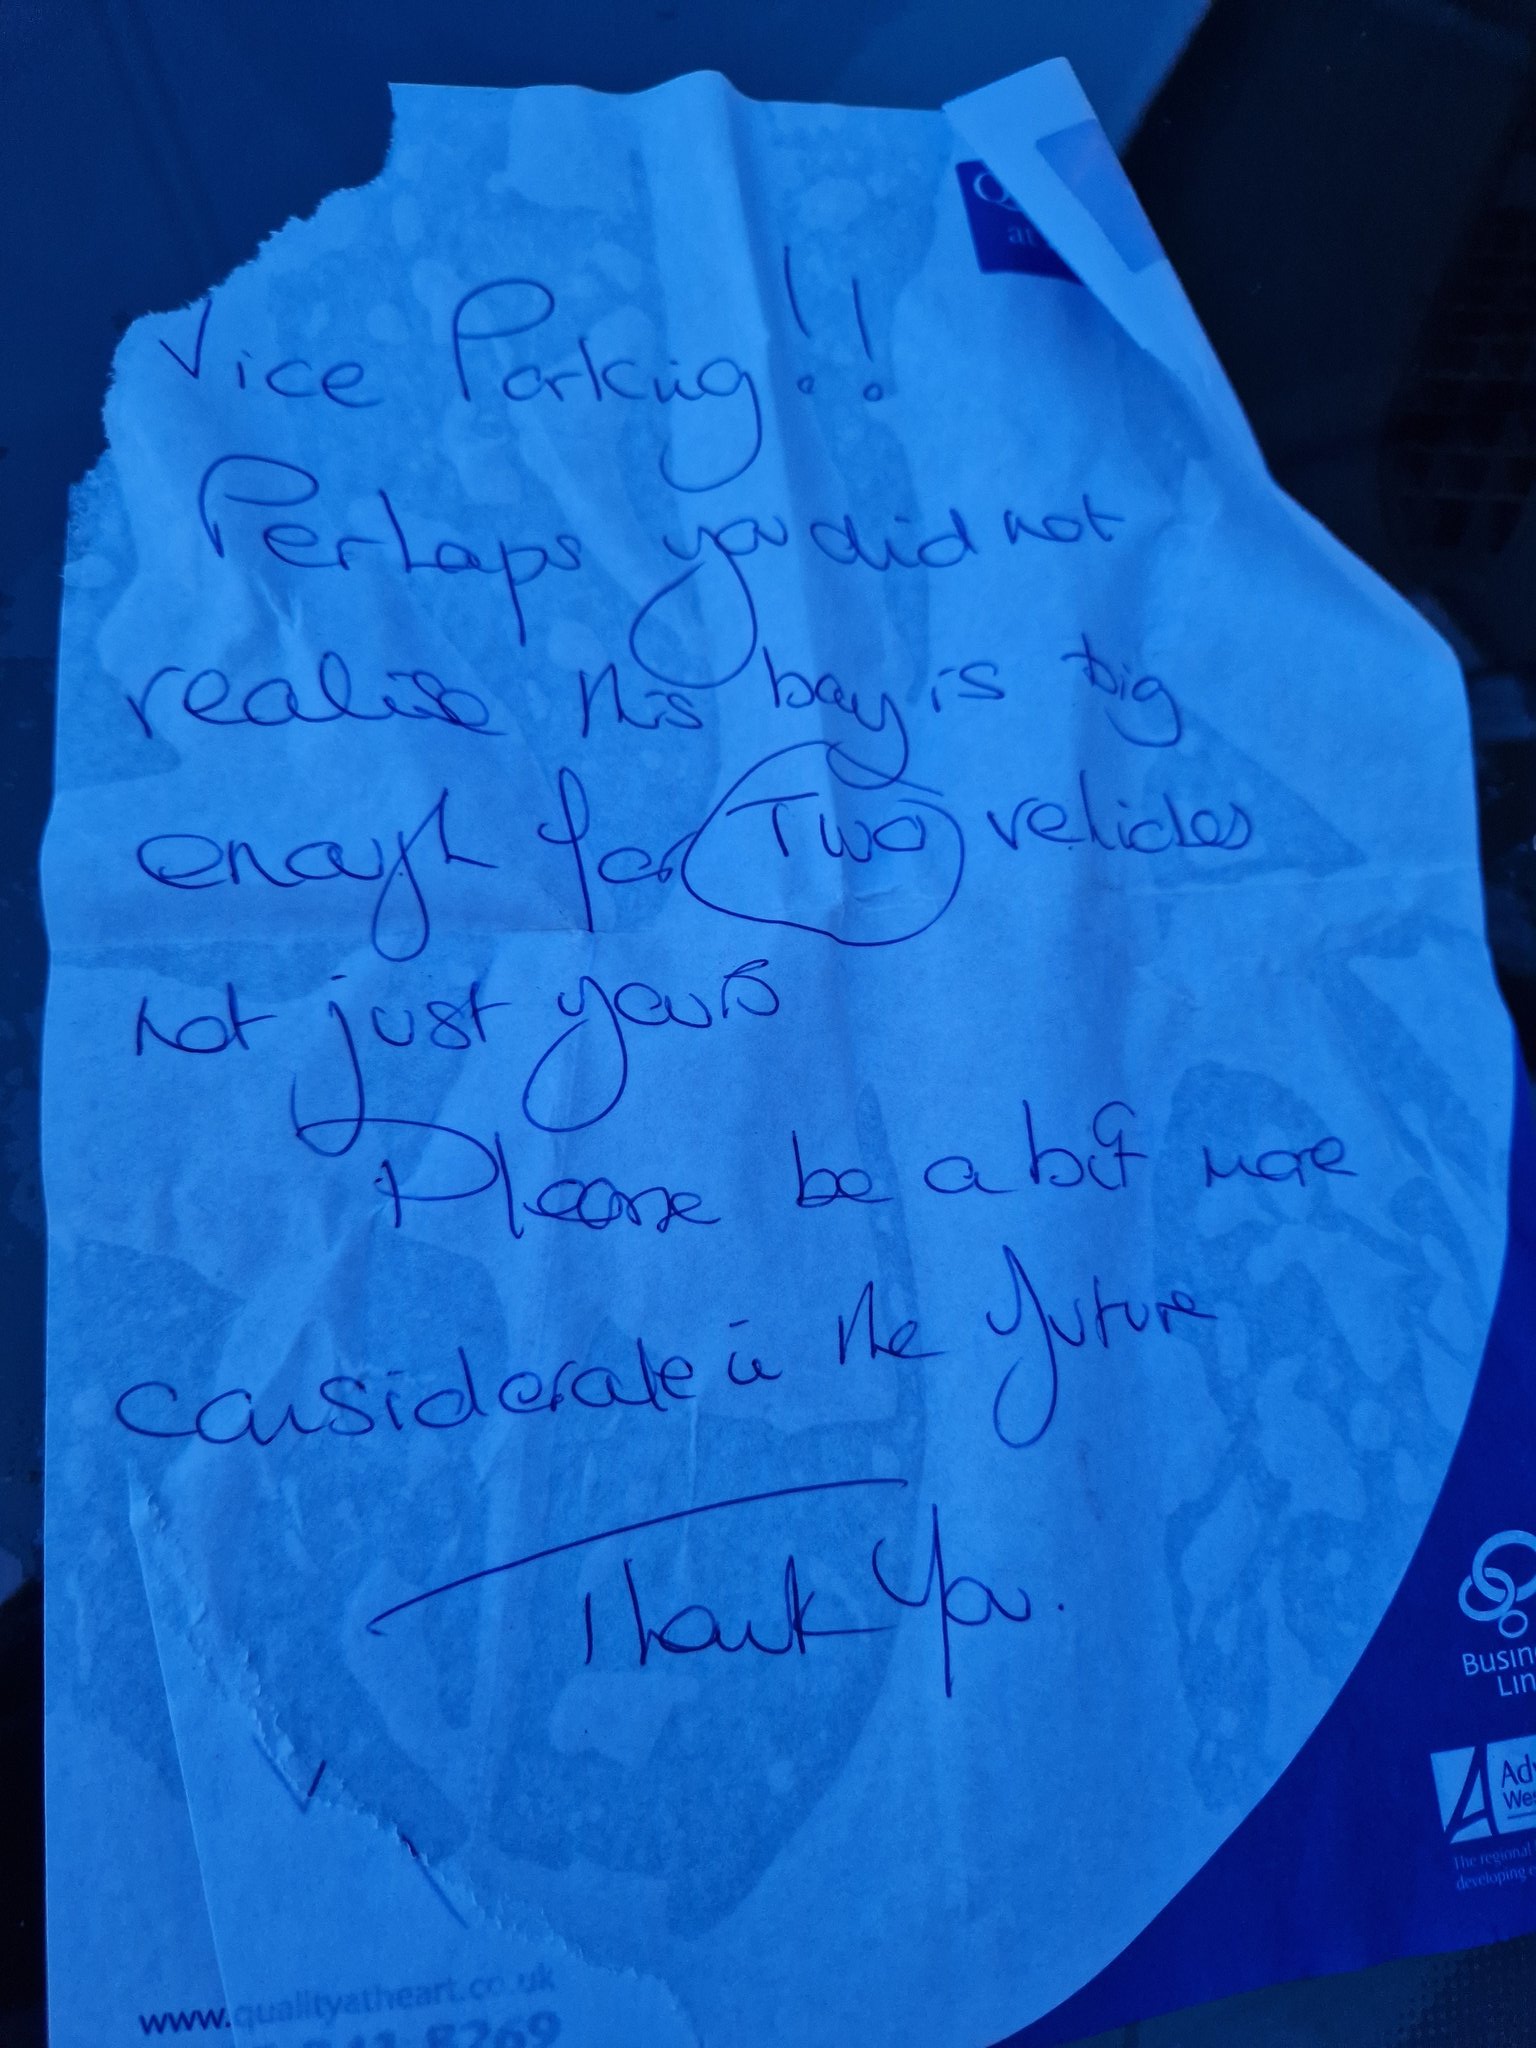 Vice Parking!!
Perhaps you did not
realise this bay is big
enough for Two vehicles
not just yours
Please be a bit more
considerate in the future
Thank You.
Q
at
Busin
Lin
Adv
Wes
The regional
developing e
www.qualityatheart.co.uk
8269